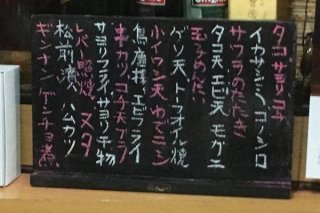 タコ サヨリ コチ
イカサシミ コノシロ
サワラのたたき
タコ天 エビ天 モダニ
玉子めだい
ゲソ天 トーフオイル焼
小イワシ天 ゆでニシ
鳥唐揚 エビフライ
串カツ コチ天プラ
サヨリフライ サヨリ干物
レバー照焼 ヌタ
松前漬 ハムカツ
ギンナン ゲシチョ煮